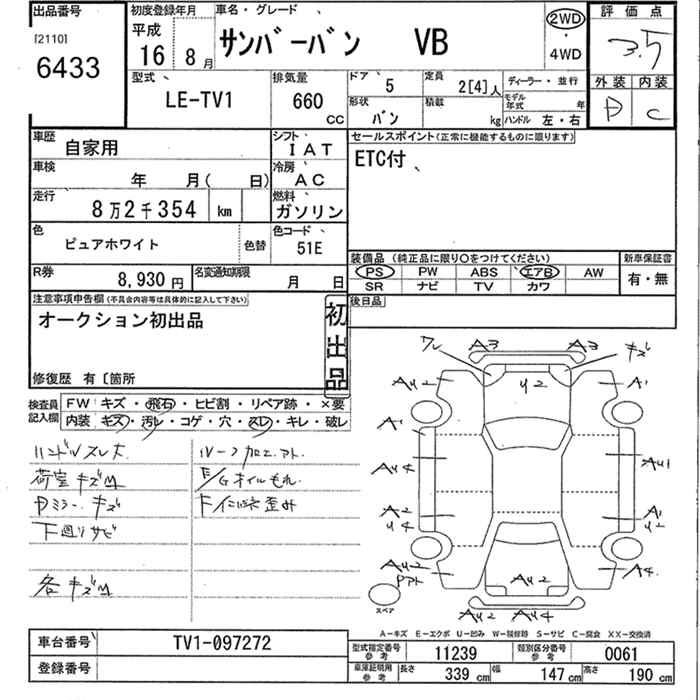 出品番号 初度登録年月 車名・グレード 評価点
[2110] 平成 2WD
6433 16 8月 サンバーバン VB ・ 4WD 3.5
型式 排気量 ドア 5 定員 2[4]人 ディーラー・並行 外装 内装
LE-TV1 660 CC 形状 バン 積載 kg モデル年式 年 ハンドル 左・右 D C
車歴 自家用 シフト IAT セールスポイント(正常に機能するものに限ります)
車検 年 月( 日) 冷房 AC ETC付
走行 8万2千354 km 燃料 ガソリン
色 ピュアホワイト 色替 色コード 51E
装備品 (純正品に限り○をつけてください) 新車保証書
R券 8,930円 名変通知期限 月 日 PS PW ABS エアB AW 有・無
SR ナビ TV カワ
注意事項申告欄(不具合内容等は具体的に記入して下さい) 初出品 後日品
オークション初出品
修復歴 有〔箇所
ワレ A3 A3 キズ
AU2 U2 A1
検査員記入欄 FW キズ・飛石・ヒビ割・リペア跡・×要
内装 キズ・汚レ・コゲ・穴・スレ・キレ・破レ
ハンドルスレ大 ルーフ加工アト
荷室キズM E/Gオイルもれ
Dミラーキズ
下廻りサビ
各キズM
AU4 AU1
A2 A1
U4 U2
AU2 A4
AU2
スペア AU2 AU4
A-キズ E-エクボ U-凹み W-補修跡 S-サビ C-腐食 XX-交換済
車台番号 TV1-097272 型式指定番号 参考 11239 類別区分番号 参考 0061
登録番号 車庫証明用 参考 長さ 339 cm 幅 147 cm 高さ 190 cm